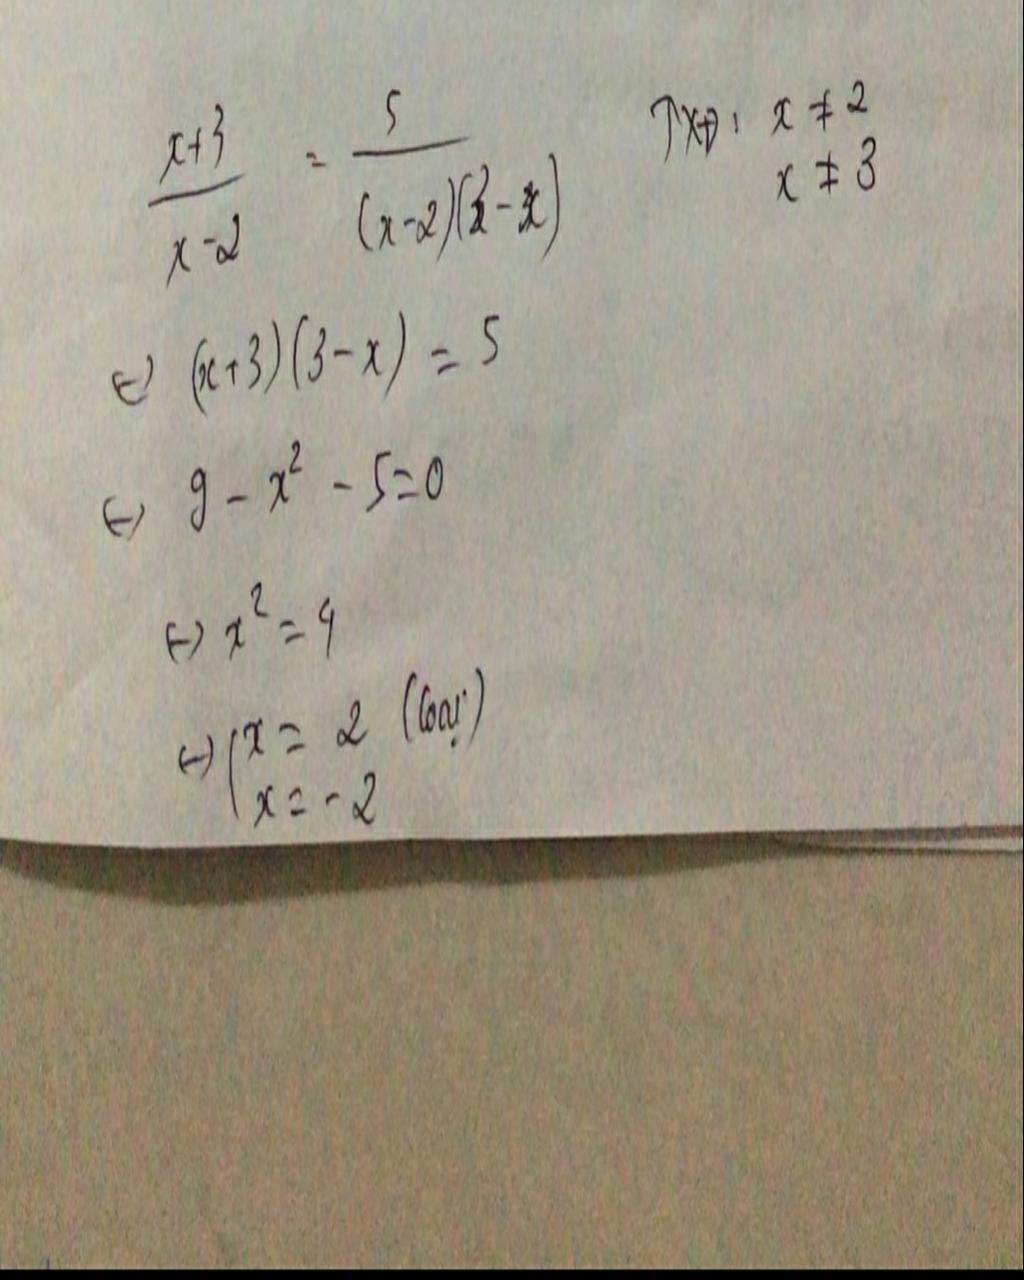 x+3 / x-2 = 5 / (x-2)(3-x) TXĐ: x ≠ 2
x ≠ 3
⇔ (x+3)(3-x) = 5
⇔ 9 - x² - 5 = 0
⇔ x² = 4
⇔ [ x = 2 (loại)
x = -2